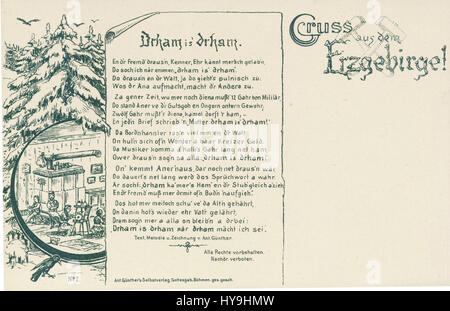 Gruss
aus dem
Erzgebirge!
Drham is' drham.
En dr Fremd draus'n, Kenner, Ehr kännt merſch gelab'n,
Do soch ich när emmer, „drham is' drham".
Do drauſsn en dr Walt, ja do gieht's pulnisch zu.
Wos dr Ana aufmacht, macht dr Andere zu.
Za gener Zeit, wu mer noch diena mußt' 12 Gahr ben Militär
Do stand Aner ve di Gutsgoh en Ongern ontern Gewehr,
Zwölf Gahr mußt'r diena, kamel dorft'r ham,
En jedn Brief schrieb'n „Mutter drham is' drham!"
Da Bordnhansler ras'n viel mm en dr Walt
On huln sich of'n Wender a baar Kreizer Gald.
Da Musiker komma a halb's Gahr lang net ham,
Ower draus'n sogn sa alla „drham is drham!
On' kemmt Aner haus, dar noch net draus'n war,
Do dauert's net lang werd das Sprüchwort a wahr.
Ar soch: drham ka'mer's Ham' en dr Stub gleich
En dr Fremd muß mer drmit of'n Bud'n nauf gieh'.
Dos hot mer meitoch schu' ve' da Altn gehährt,
On da nin hot's wieder ehr Vatr gelährt,
Dram sogn mer a alla on bleib'n a drbei:
Drham is' drham när drham mächt ich sei.
Text, Melodie u. Zeichnung v. Ant. Günther.
Alle Rechte vorbehalten.
Nachdr. verboten.
Ant. Günther's Selbstverlag, Gottesgab, Böhmen. ges. gesch.
alamy
HY9HMW